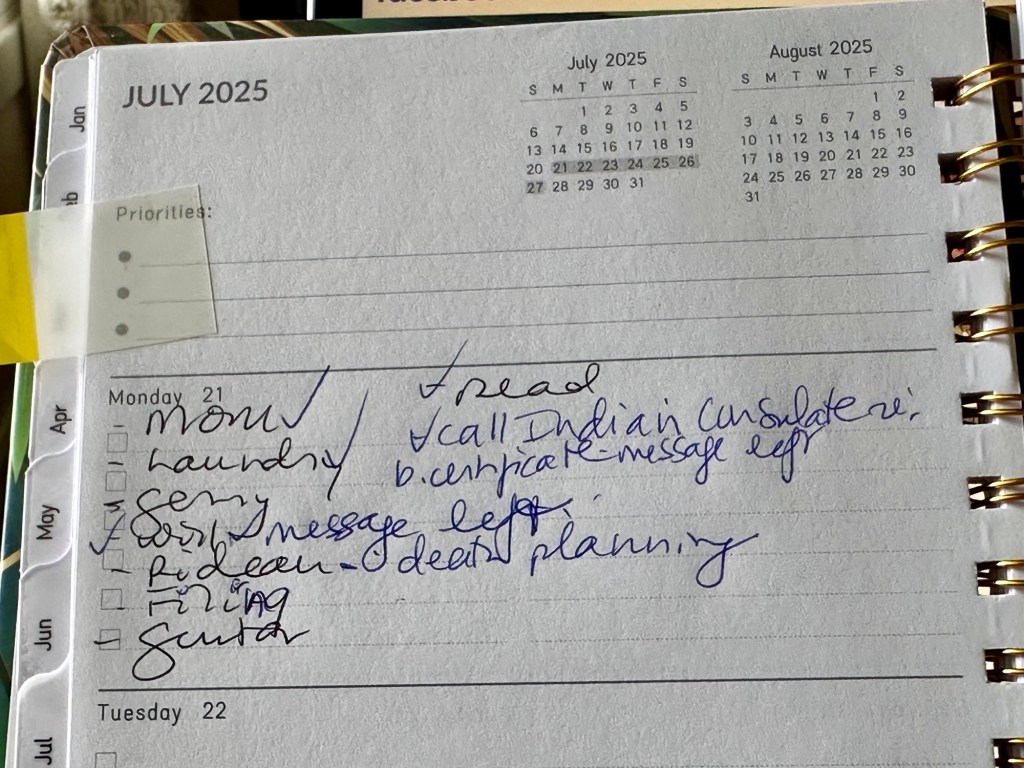 JULY 2025
July 2025
S M T W T F S
1 2 3 4 5
6 7 8 9 10 11 12
13 14 15 16 17 18 19
20 21 22 23 24 25 26
27 28 29 30 31
August 2025
S M T W T F S
1 2
3 4 5 6 7 8 9
10 11 12 13 14 15 16
17 18 19 20 21 22 23
24 25 26 27 28 29 30
31
Jan
eb
Apr
May
Jun
Jul
Priorities:
Monday 21
- Mom ✓
- Laundry ✓
Gerry
message left.
- Rideau - death planning
Filing
- Guitar
✓ read
✓ call Indian Consulate re:
b. certificate - message left
Tuesday 22